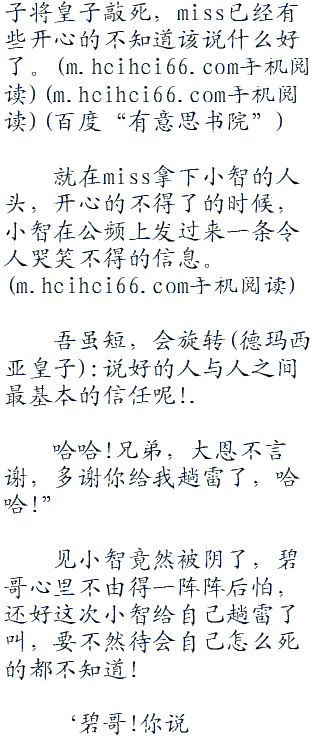 子将皇子敲死，miss已经有
些开心的不知道该说什么好
了。(m.hcihci66.com手机阅
读)(m.hcihci66.com手机阅
读)(百度“有意思书院”)
就在miss拿下小智的人
头，开心的不得了的时候，
小智在公频上发过来一条令
人哭笑不得的信息。
(m.hcihci66.com手机阅读)
吾虽短，会旋转(德玛西
亚皇子):说好的人与人之间
最基本的信任呢!.
哈哈!兄弟，大恩不言
谢，多谢你给我趟雷了，哈
哈!”
见小智竟然被阴了，碧
哥心里不由得一阵阵后怕，
还好这次小智给自己趟雷了
叫，要不然待会自己怎么死
的都不知道!
‘碧哥!你说